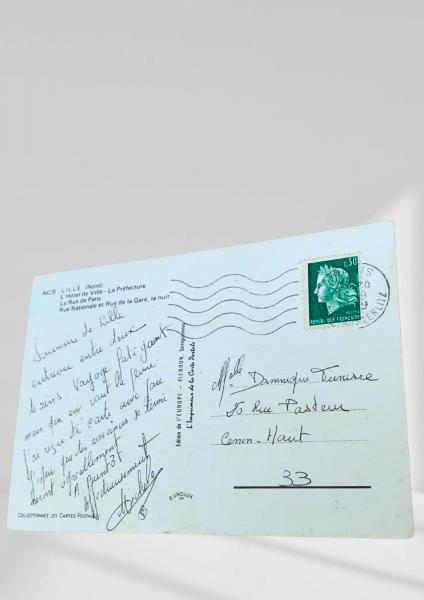 NC/9 - LILLE (Nord)
L'Hôtel de Ville - La Préfecture
La Rue de Paris
Rue Nationale et Rue de la Gare, la nuit
Souvenir de Lille
entrevue entre deux
trains. Voyage fatigant
mais qui en vaut la peine.
J'ai reçu ta carte avec joie
que les vacances se
A bientôt
Affectueusement
COLLECTIONNEZ LES CARTES POSTALES
Edition de l'EUROPE - PIERRON, Sarreguemines
L'Imprimeur de la Carte Postale
EUROLUX
0,30
POSTES
REPUBLIQUE FRANÇAISE
Melle Dominique
50 Rue Pasteur
Cenon-Haut
33